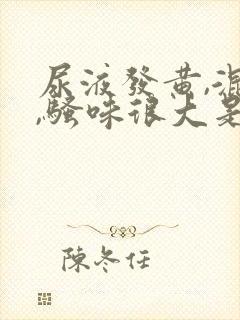 尿液發黃,混
,騷味很大是
陳冬任